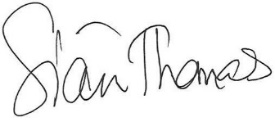 Siân Thomas